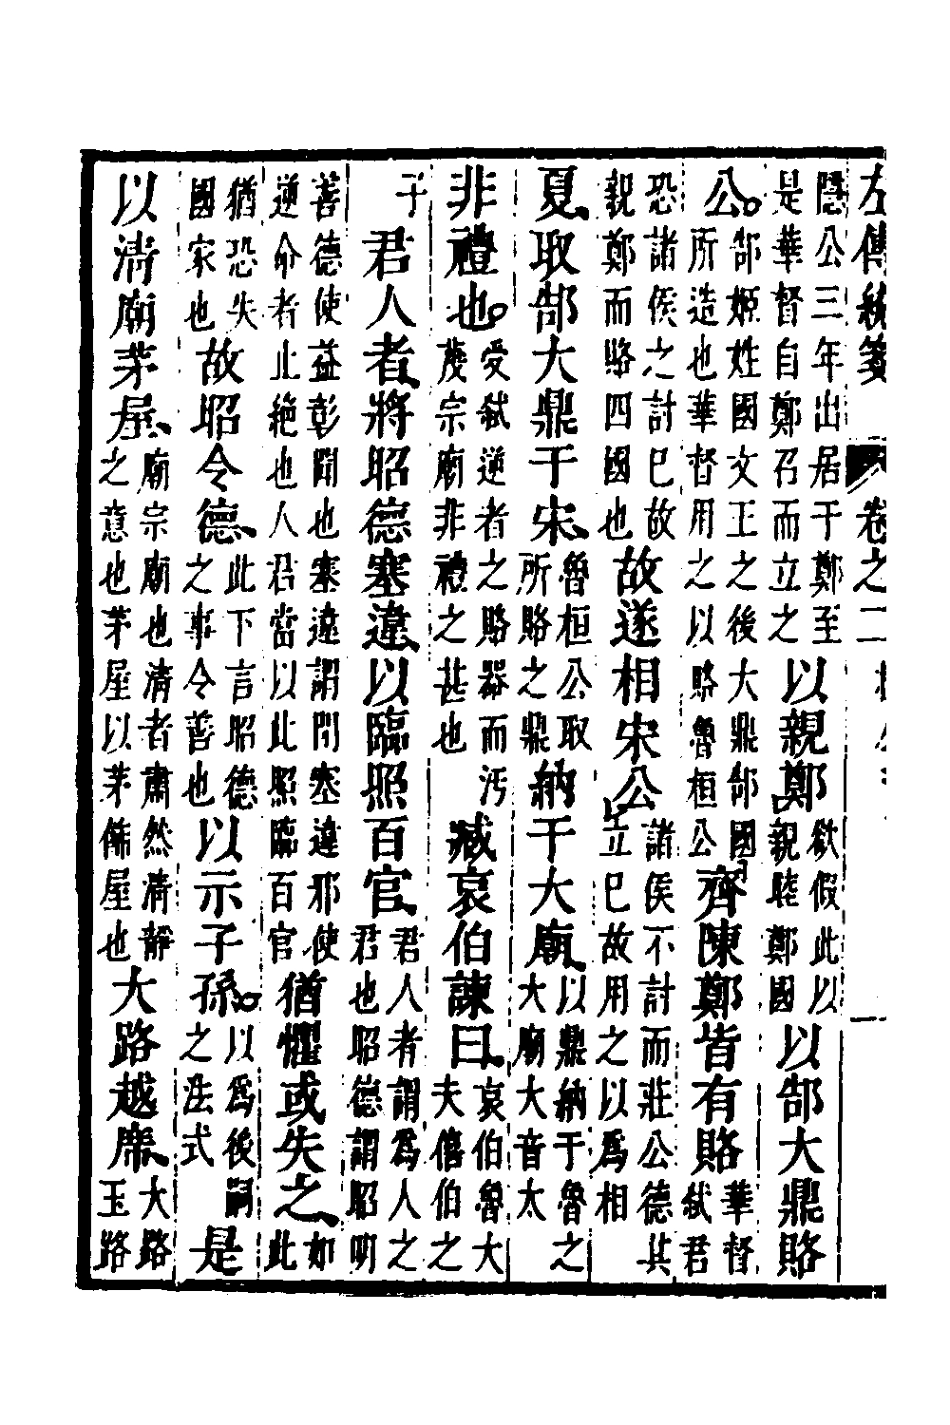 左傳統箋 卷之二 一
隱公三年出居于鄭至是華督自鄭召而立之以親鄭欲假此以親睦鄭國以郜大鼎賂
公郜姬姓國文王之後大鼎郜國所造也華督用之以賂魯桓公齊陳鄭皆有賂華督弑君
恐諸侯之討已故親鄭而賂四國也故遂相宋公諸侯不討而莊公德其立已故用之以爲相
夏取郜大鼎于宋魯桓公取所賂之鼎納于大廟以鼎納于魯之大廟大音太
非禮也受弑逆者之賂器而汚蔑宗廟非禮之甚也臧哀伯諫曰哀伯魯大夫僖伯之
子君人者將昭德塞違以臨照百官君人者謂爲人之君也昭德謂昭明
善德使益彰聞也塞違謂閉塞違邪使逆命者止絶也人君當以此照臨百官猶懼或失之如此
猶恐失國家也故昭令德此下言昭德之事令善也以示子孫以爲後嗣之法式是
以清廟茅屋廟宗廟也清者肅然清靜之意也茅屋以茅餙屋也大路越席大路玉路